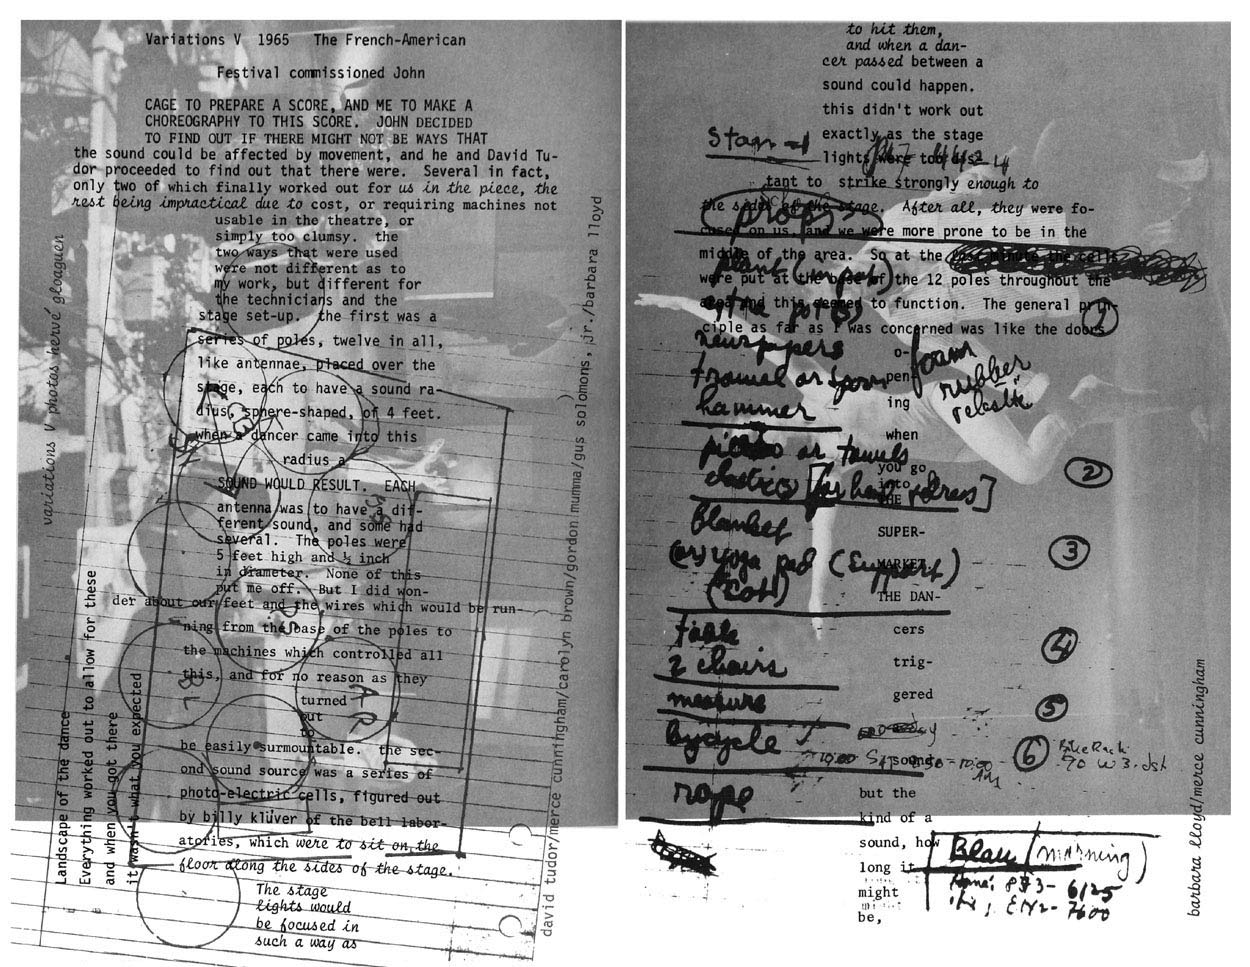 Variations V 1965 The French-American
Festival commissioned John
CAGE TO PREPARE A SCORE, AND ME TO MAKE A
CHOREOGRAPHY TO THIS SCORE. JOHN DECIDED
TO FIND OUT IF THERE MIGHT NOT BE WAYS THAT
the sound could be affected by movement, and he and David Tu-
dor proceeded to find out that there were. Several in fact,
only two of which finally worked out for us in the piece, the
rest being impractical due to cost, or requiring machines not
usable in the theatre, or
simply too clumsy. the
two ways that were used
were not different as to
my work, but different for
the technicians and the
stage set-up. the first was a
series of poles, twelve in all,
like antennae, placed over the
stage, each to have a sound ra-
dius, sphere-shaped, of 4 feet.
when a dancer came into this
radius a
SOUND WOULD RESULT. EACH
antenna was to have a dif-
ferent sound, and some had
several. The poles were
5 feet high and ½ inch
in diameter. None of this
put me off. But I did won-
der about our feet and the wires which would be run-
ning from the base of the poles to
the machines which controlled all
this, and for no reason as they
turned
out
to
be easily surmountable. the sec-
ond sound source was a series of
photo-electric cells, figured out
by billy klüver of the bell labor-
atories, which were to sit on the
floor along the sides of the stage.
The stage
lights would
be focused in
such a way as
variations V photos hervé gloaguen
Landscape of the dance
Everything worked out to allow for these
and when you got there
it wasn't what you expected
BL
AR
david tudor/merce cunningham/carolyn brown/gordon mumma/gus solomons, jr./barbara lloyd
to hit them,
and when a dan-
cer passed between a
sound could happen.
this didn't work out
exactly as the stage
lights were too dis-
tant to strike strongly enough to
the sides of the stage. After all, they were fo-
cused on us, and we were more prone to be in the
middle of the area. So at the last minute the cells
were put at the base of the 12 poles throughout the
area and this seemed to function. The general prin-
ciple as far as I was concerned was like the doors
o-
pen-
ing
when
you go
into
THE
SUPER-
MARKET.
THE DAN-
cers
trig-
gered
sound
but the
kind of a
sound, how
long it
might
be,
(props)
plant (in pot)
newspapers
trowel or spoon
hammer
foam
rubber
or towels
elastics [for hair & dress]
Blanket
(or) yoga pad (support)
(cot)
table
2 chairs
measure
bicycle
rope
1
2
3
4
5
6
Bike Rack
70 W 3. st
Blau (morning)
Home: 873-6125
EN2-7600
barbara lloyd/merce cunningham